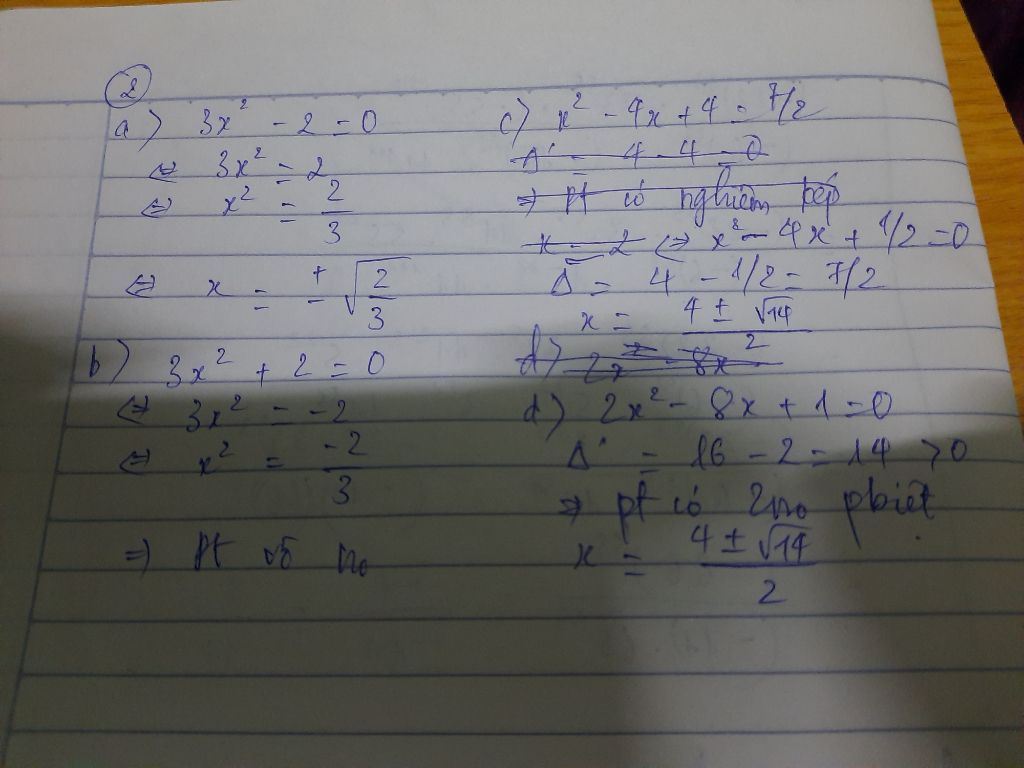 2
a) 3x² - 2 = 0
⇔ 3x² = 2
⇔ x² = 2/3
⇔ x = ± √(2/3)
b) 3x² + 2 = 0
⇔ 3x² = -2
⇔ x² = -2/3
⇒ Pt vô n₀
c) x² - 4x + 4 = 7/2
Δ' = 4 - 4 = 0
⇒ pt có nghiệm kép
x = 2 ⇔ x² - 4x + 1/2 = 0
Δ = 4 - 1/2 = 7/2
x = (4 ± √14)/2
d) 2x² - 8x
d) 2x² - 8x + 1 = 0
Δ' = 16 - 2 = 14 > 0
⇒ pt có 2n₀ pbiệt
x = (4 ± √14)/2